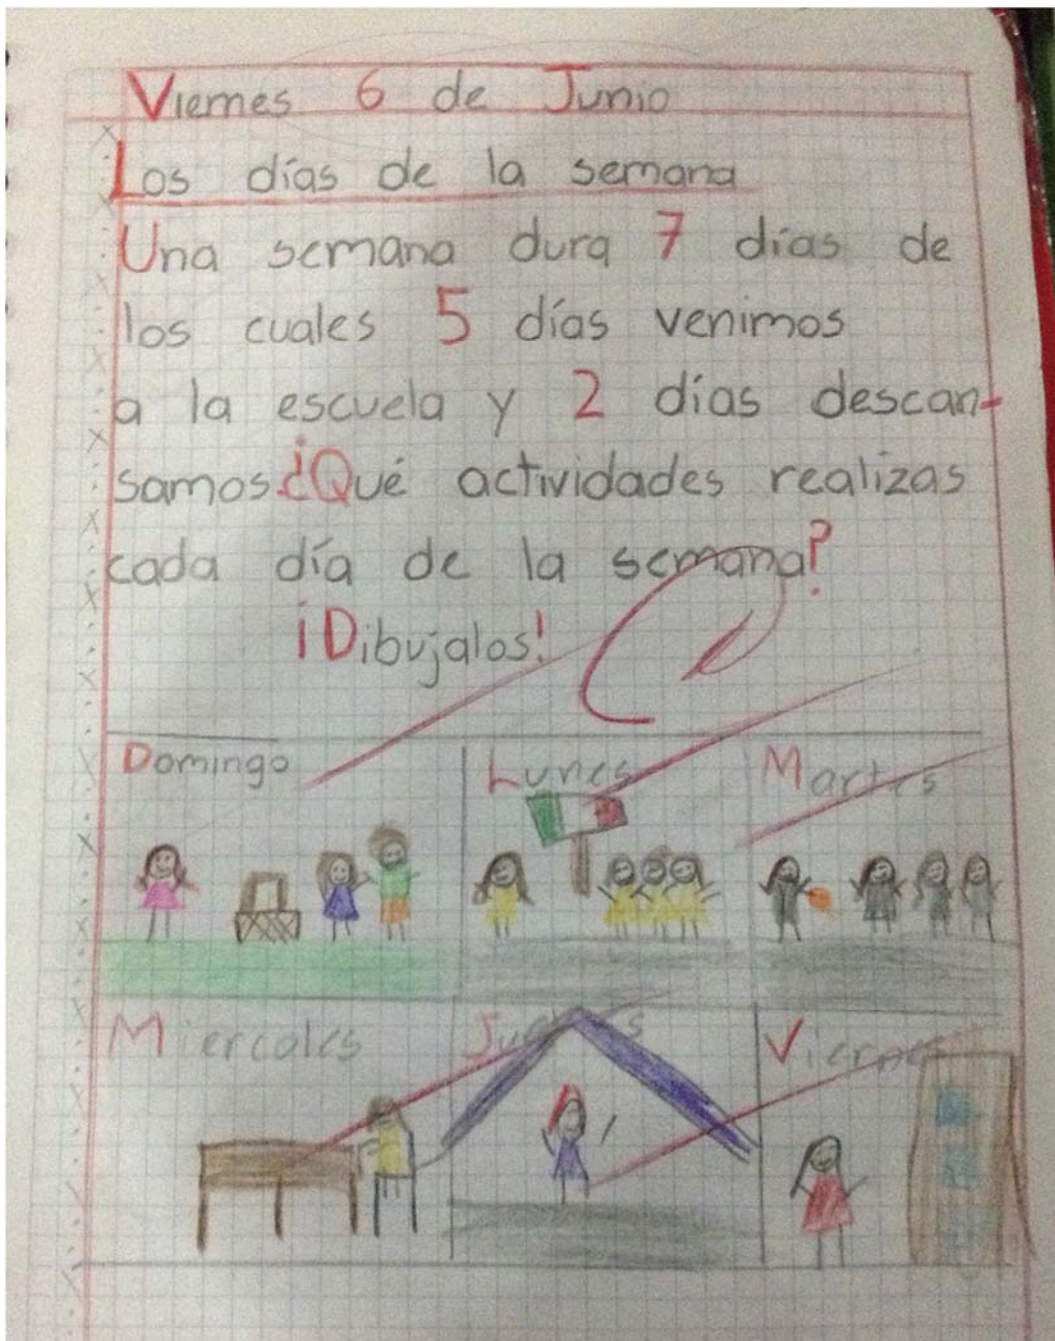 Viernes 6 de Junio
Los días de la semana
Una semana dura 7 días de
los cuales 5 días venimos
a la escuela y 2 días descan-
samos ¿Qué actividades realizas
cada día de la semana?
¡Dibujalos!
Domingo Lunes Martes
Miercoles Jueves Viernes